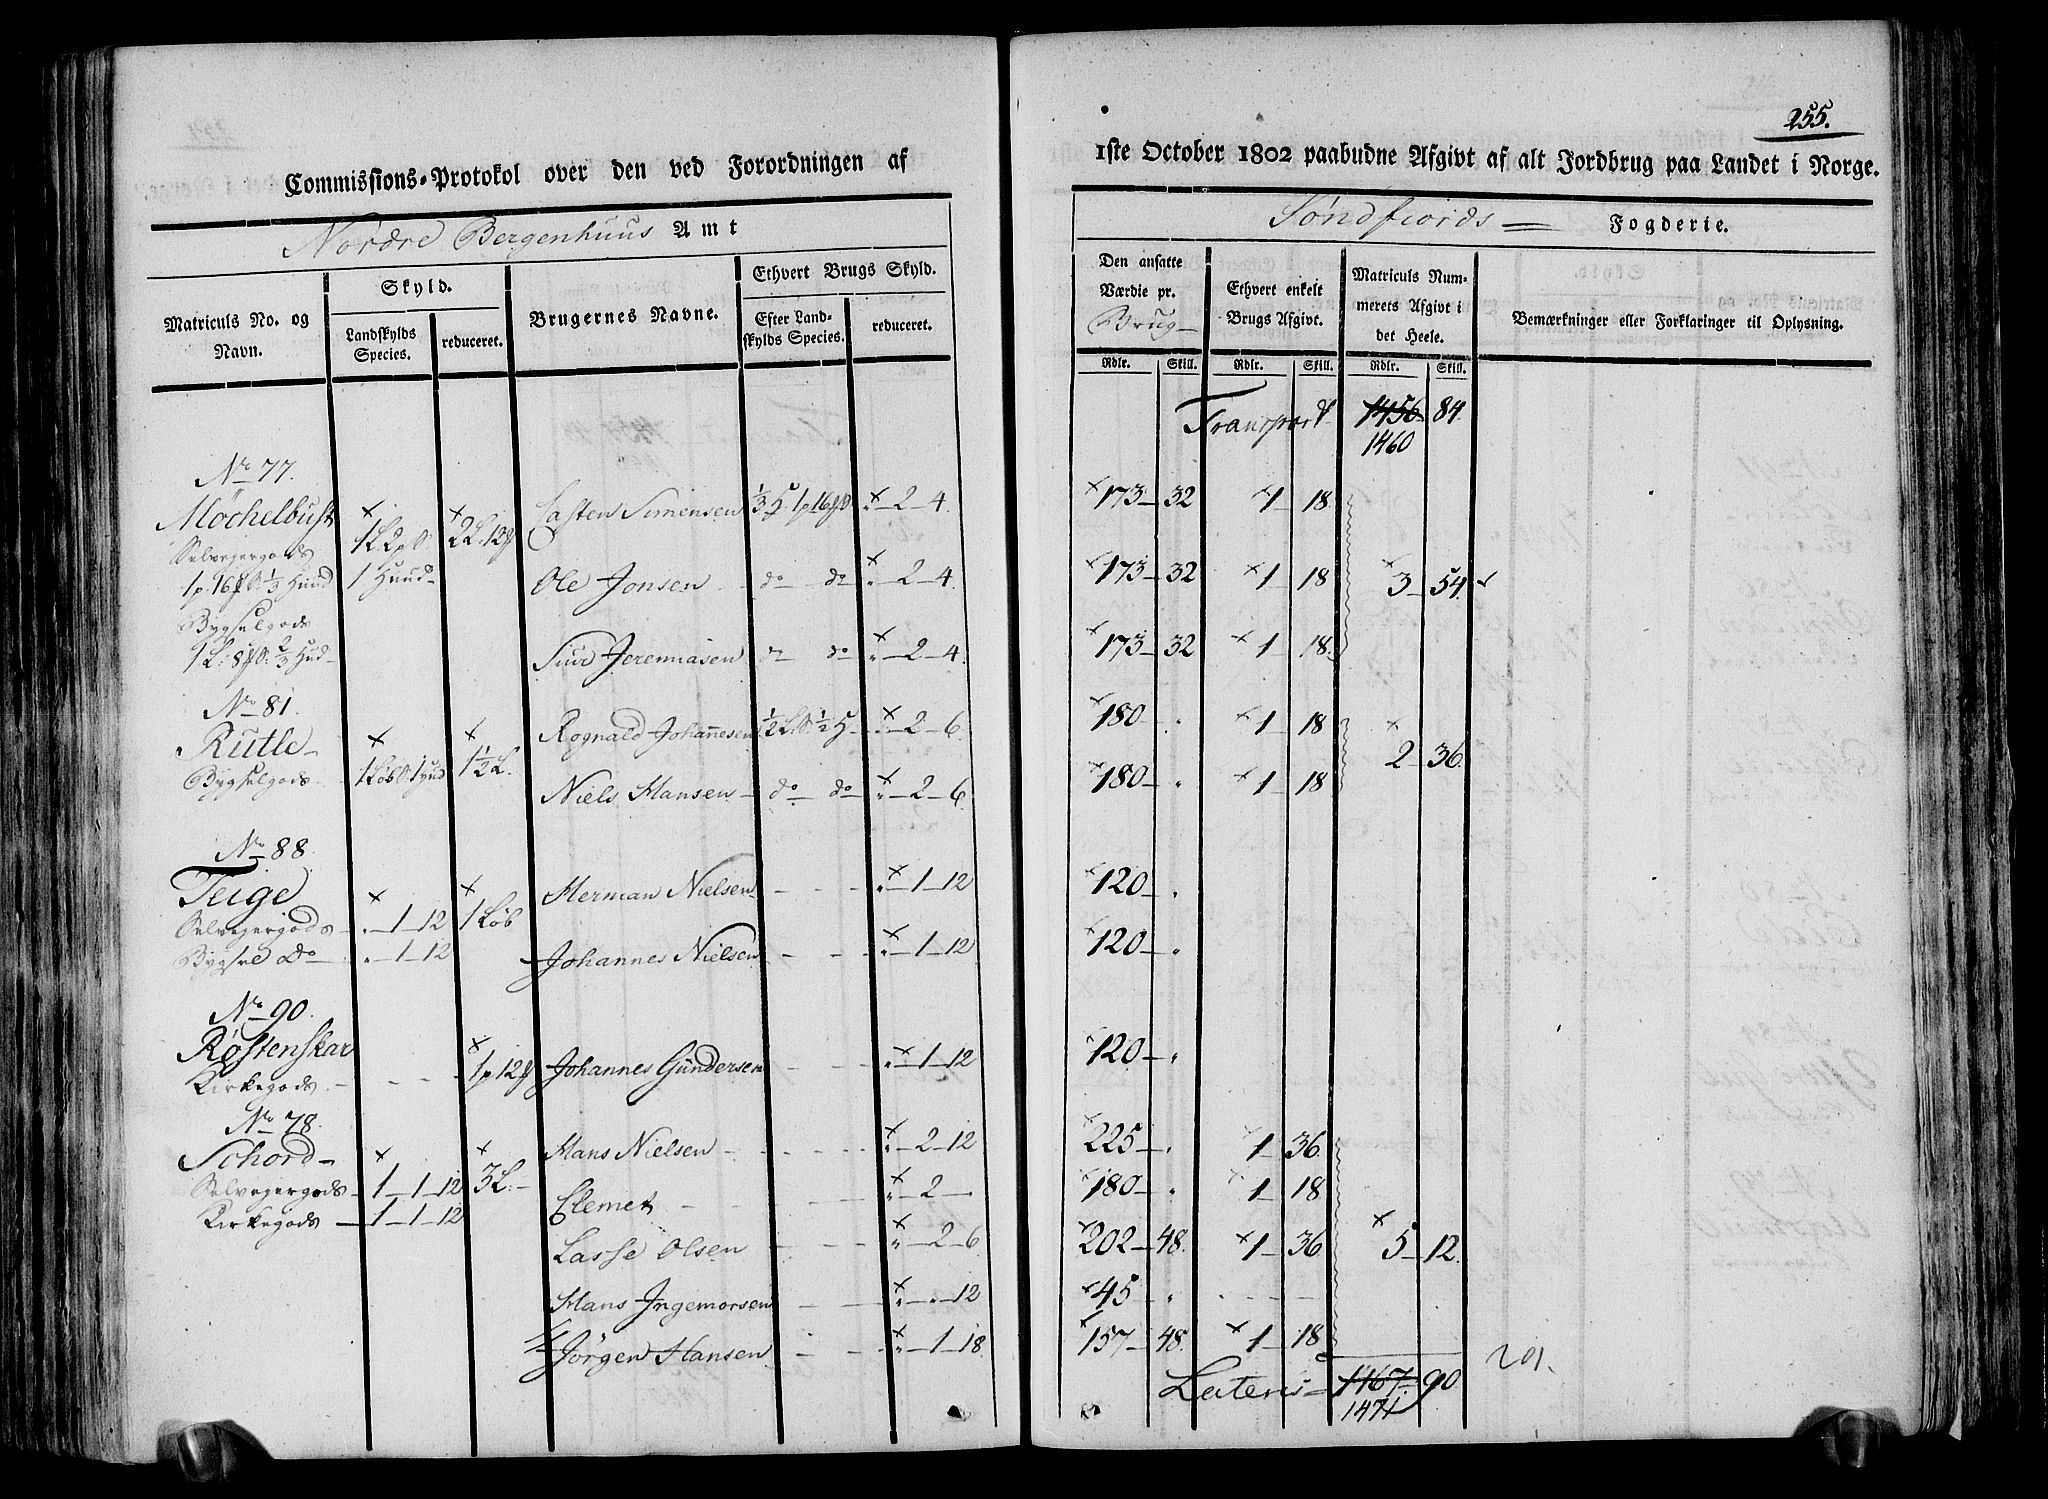 255.
Commissions-Protokol over den ved Forordningen af
1ste October 1802 paabudne Afgivt af alt Jordbrug paa Landet i Norge.
Nordre Bergenhuus Amt
Søndfiords Fogderie.
Matriculs No. og Navn.
Skyld.
Landskylds Species.
reduceret.
Brugernes Navne.
Ethvert Brugs Skyld.
Efter Landskylds Species.
reduceret.
Den ansatte Værdie pr. Brug
Ethvert enkelt Brugs Afgivt.
Matriculs Nummerets Afgivt i det Heele.
Bemærkninger eller Forklaringer til Oplysning.
Rdlr. Skill. Rdlr. Skill. Rdlr. Skill.
Transport 1456 84.
1460
No 77.
Möchelbust
Selvegergods
1p. 16 1/3 Huud
Bygselgods
2/3 Hud
1 Huud
Casten Simensen 2 - 4. 173 - 32 1 18.
Ole Jonsen do do 2 - 4. 173 - 32 1 18 3 - 54.
Siur Jeremiasen do do 2 - 4. 173 - 32 1 18.
No 81.
Rutle
Bygselgods 1 1/2 L.
Rognald Johannesen 2 - 6 180 - " 1 - 18
2 - 36.
Niels Hansen do do 2 - 6. 180 - " 1 - 18
No 88.
Teige
Selvegergods " - 1 - 12 1 Løb
Bygsel do " - 1 - 12
Herman Nielsen " - 1 - 12 120 - "
Johannes Nielsen " - 1 - 12 120 - "
No 90.
Røstenskar
Kirkegods 1p 12
Johannes Gundersen " - 1 - 12 120 - "
No 78.
Schord
Selvegergods 1 - 1 - 12 3 L.
Kirkegods 1 - 1 - 12
Hans Nielsen " - 2 - 12 225 - " 1 - 36.
Clemet " - 2 - 180 - " 1 - 18
Lasse Olsen " - 2 - 6 202 - 48. 1 - 36 5 - 12.
Hans Ingemorsen " - " - 12 45 - "
Jörgen Hansen " - 1 - 18. 157 - 48. 1 - 18
Lateris 1467 90.
1471
201.